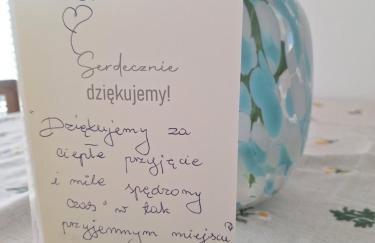 Serdecznie
dziękujemy!
"Dziękujemy za
ciepłe przyjęcie
i mile spędzony
czas" w tak
przyjemnym miejscu"